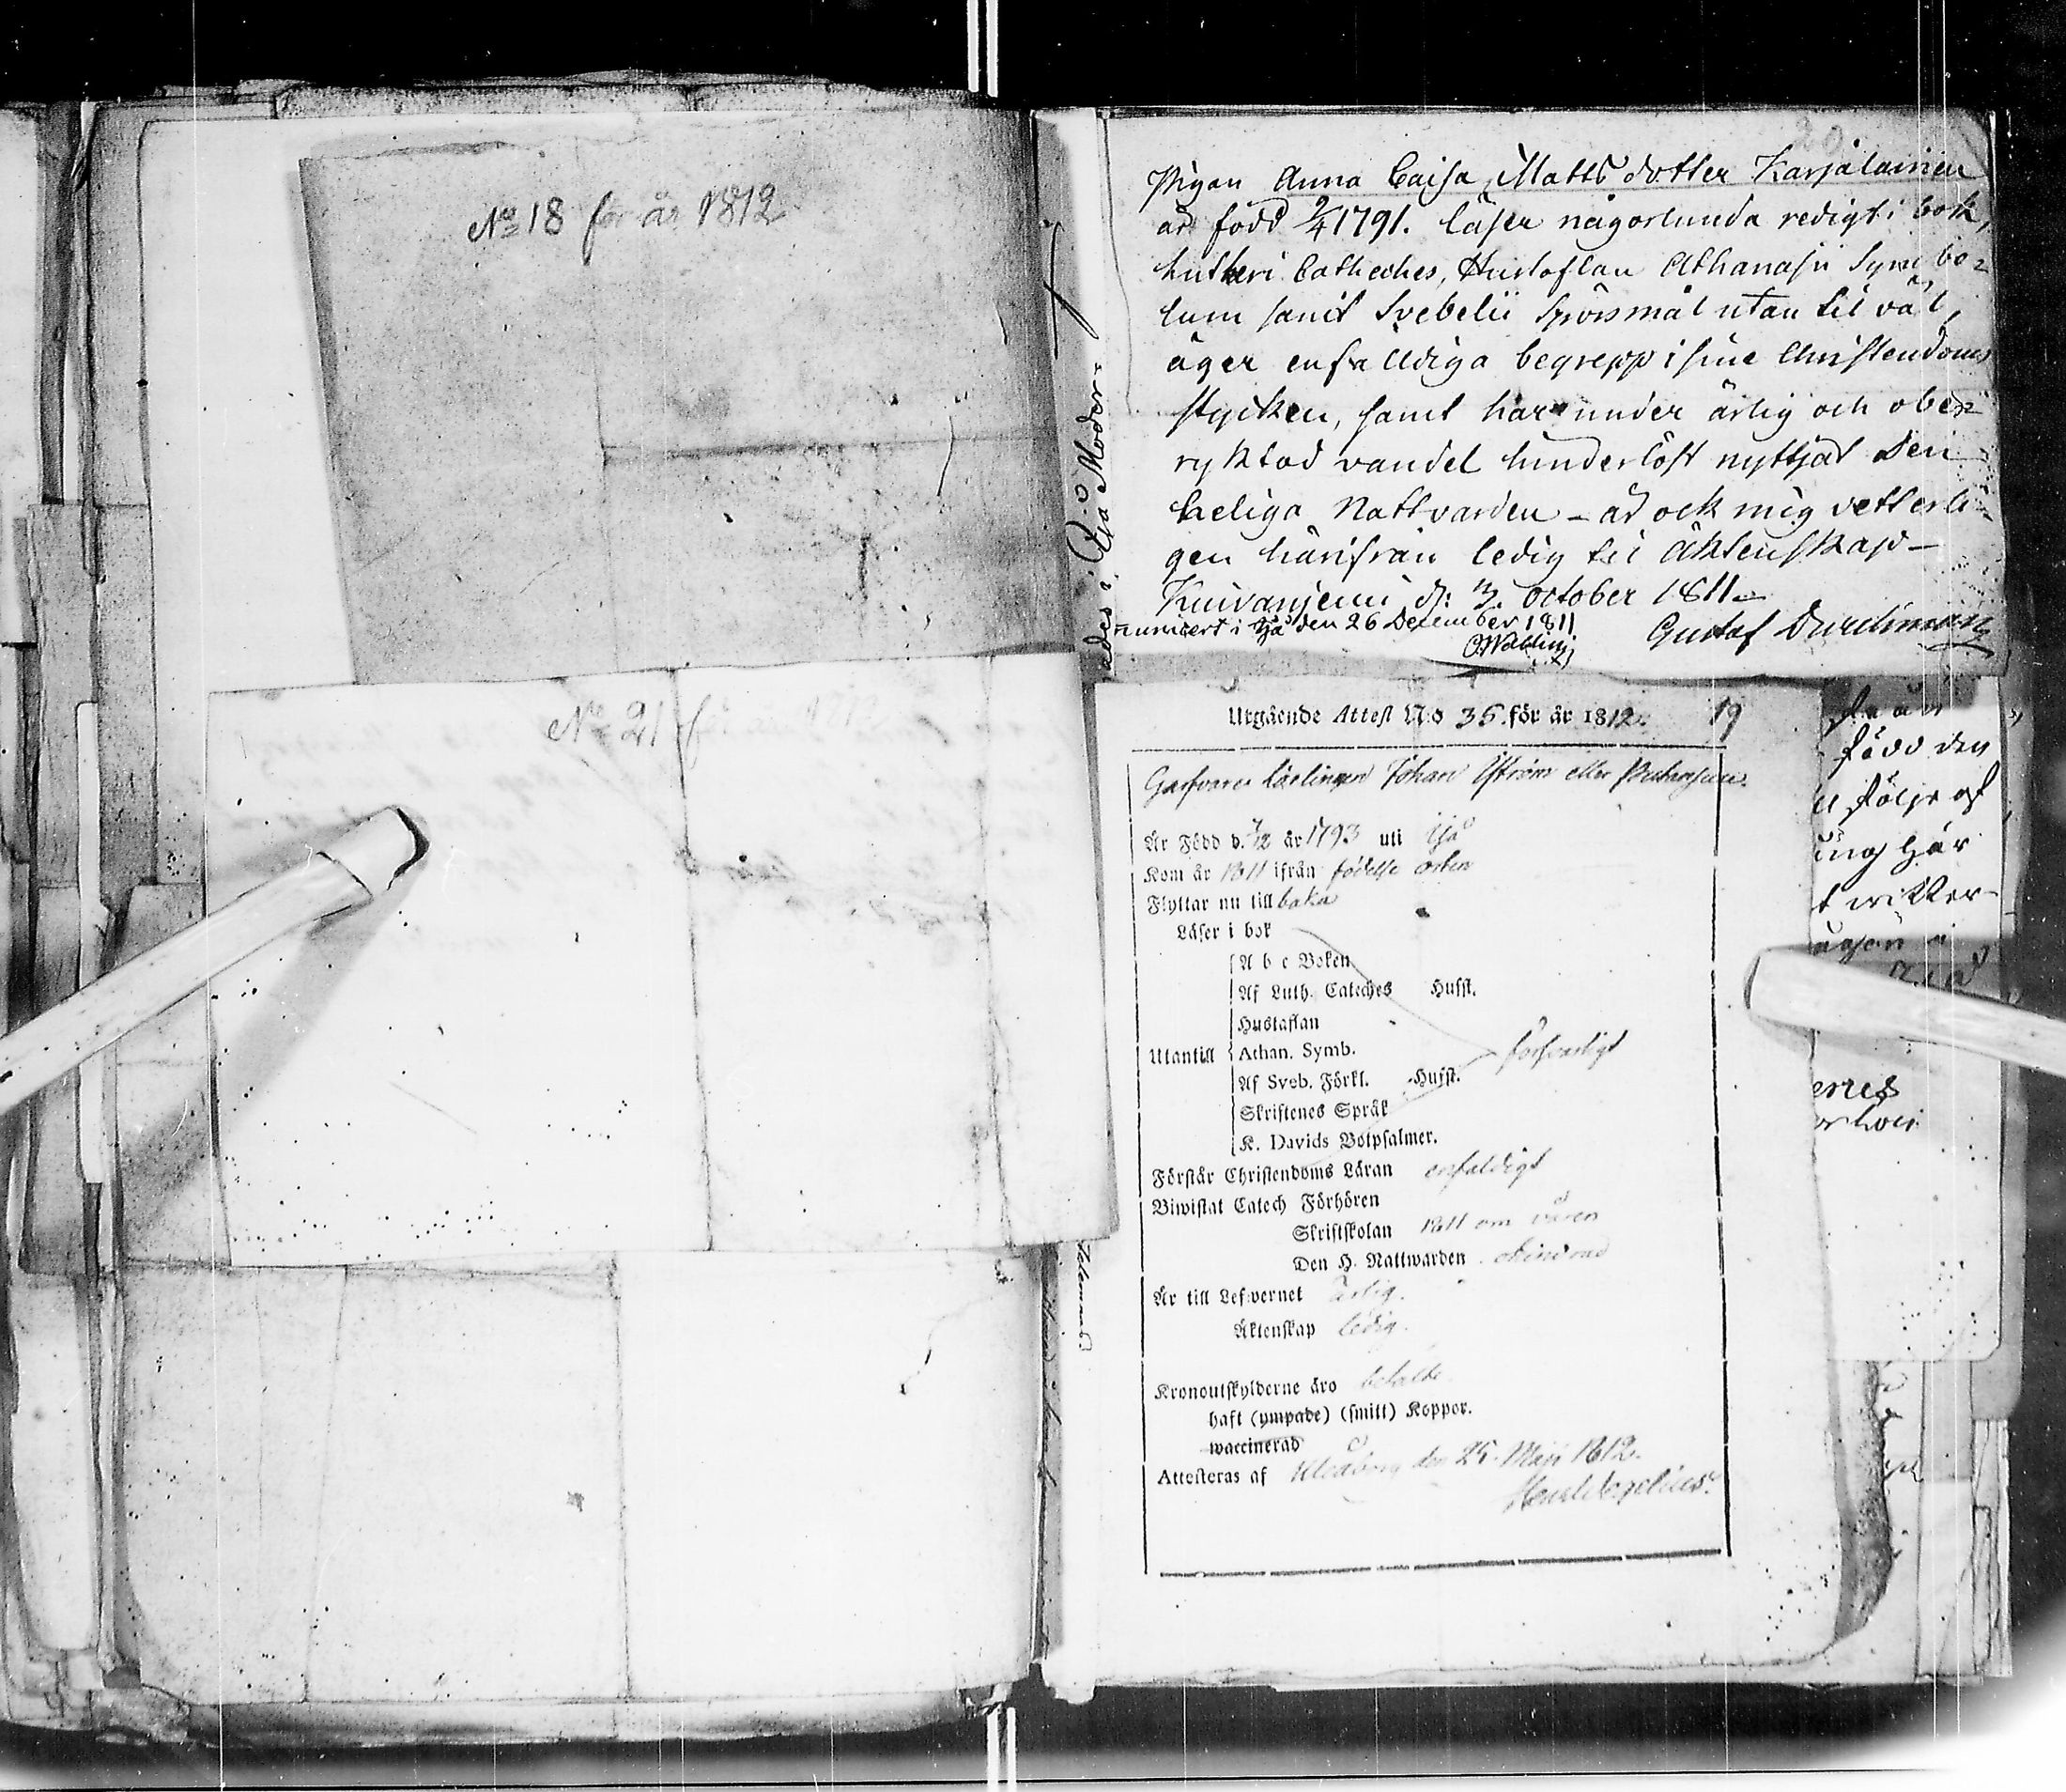 No 18 för år 1812
No 21 för år 1812
20
Pigan Anna Caisa Mattsdotter Karjalainen
är född 9/4 1791. läser någorlunda redigt i bok,
Lutheri Catheches, Hustaflan Athanasii Symbo=
lum samt Svebelii Spörsmål utan til väl,
äger enfalldiga begrepp i sine Christendoms
stycken, samt har under ärlig och obe=
ryktad vandel hinderlöst nyttjat Den
heliga Nattvarden – är ock mig vetterli=
gen härifrån ledig til Äktenskap –
Kuivaniemi d: 3. October 1811 –
Gustaf
den 26 December 1811
Moder=
Utgående Attest N:o 36 för år 1812. 19
Garfvare Lärlingen Johan Åström eller
Är Född d. 7/2 år 1793 uti Ijå
Kom år 1811 ifrån födelse orten
Flyttar nu till baka
Läser i bok
A b c Boken
Af Luth. Cateches Hufst.
Hustaflan
Utantill Athan. Symb. försvarligt
Af Sveb. Förkl. Hufst.
Skriftenes Språk
K. Davids Botpsalmer.
Förstår Christendoms Läran enfaldigt
Biwistat Catech Förhören
Skriftskolan 1811 om våren
Den H. Nattwarden
Är till Lefvernet ärlig.
Äktenskap ledig.
Kronoutskylderne äro betalte
haft (ympade) (smitt) Koppor.
waccinerad
Attesteras af Uleåborg den 25 Maji 1812.
född den
följe af
här